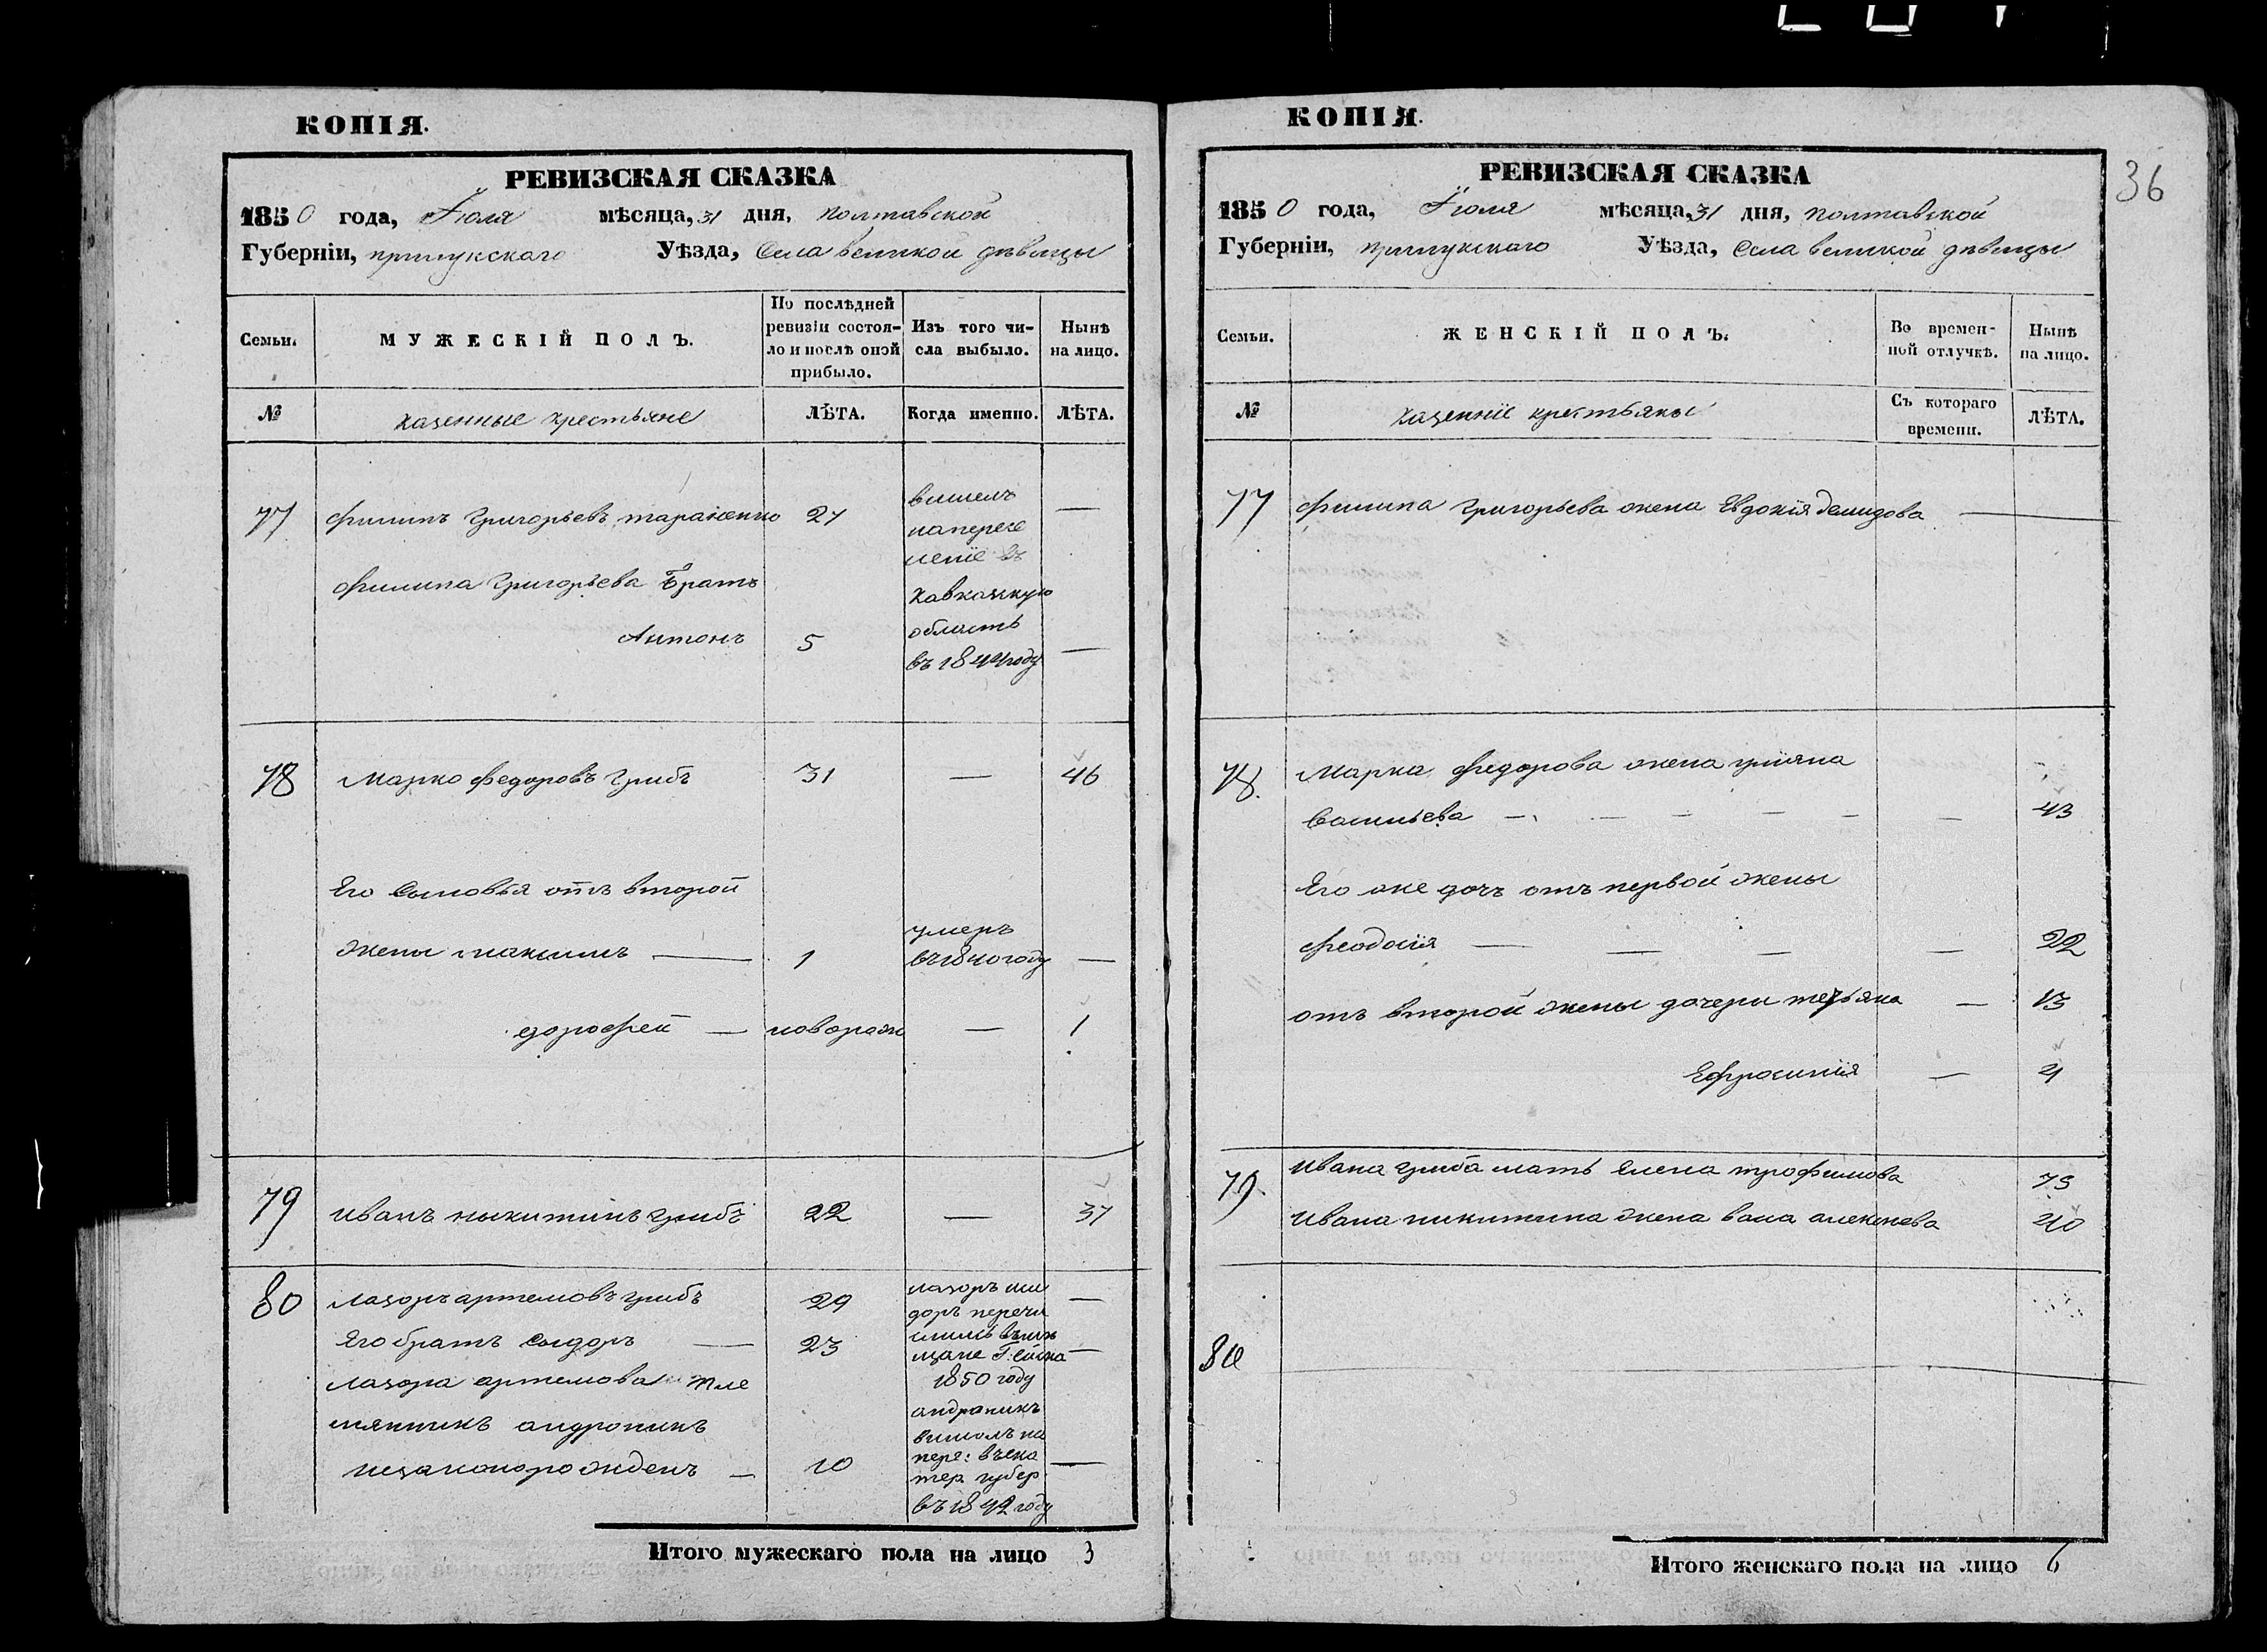 КОПІЯ.
РЕВИЗСКАЯ СКАЗКА
1850 года, Іюля мѣсяца, 31 дня, полтавской
Губерніи, прилукскаго Уѣзда, Села великой дѣвицы
Семьи.
МУЖЕСКІЙ ПОЛЪ.
По послѣдней ревизіи состоя-
ло и послѣ оной прибыло.
Изъ того чи-
сла выбыло.
Нынѣ
на лицо.
№
казенные крестьяне
ЛѢТА.
Когда именно.
ЛѢТА.
77 филипъ Григорьевъ тараненко 27 —
вишелъ
напересе
ленїе въ
Кавказкую
область
въ 1844 году
филипа Григорьева Братъ
Антонъ 5 —
78 Марко федоровъ Грибъ 31 — 46
Его Сыновья отъ второй
жены максимъ — 1 —
умеръ
въ 1840 году
дорофей — новорож — 1
79 иванъ никитинъ грибъ 22 — 37
80 лазоръ артемовъ грибъ 29 —
Его братъ Сыдоръ — 23 —
лазора артемова пле
мянникъ андроникъ
незаконорожденъ — 10 —
лазоръ иси
доръ перечи
1850 году
андраникъ
вишолъ на
пере: въека
тер. губер
въ 1842 году
Итого мужескаго пола на лицо 3
КОПІЯ.
36
РЕВИЗСКАЯ СКАЗКА
1850 года, Їюля мѣсяца, 31 дня, полтавской
Губерніи, прилукскаго Уѣзда, Села великой дѣвицы
Семьи.
ЖЕНСКІЙ ПОЛЪ.
Во времен-
ной отлучкѣ.
Нынѣ
на лицо.
№
казеннїе крестьяны
Съ котораго
времени.
ЛѢТА.
77 филипа Григорьева жена Евдокїя демидова —
78. Марка федорова жена улїяна
васильева — — — — — — 43
Его же дочъ отъ первой жены
феодосїя — — — — 22
отъ второй жены дочери татьяна — 13
Ефросинїя — 4
79. ивана гриба мать елена трофимова 75
ивана никитина жена васа алексеева 40
80
Итого женскаго пола на лицо 6